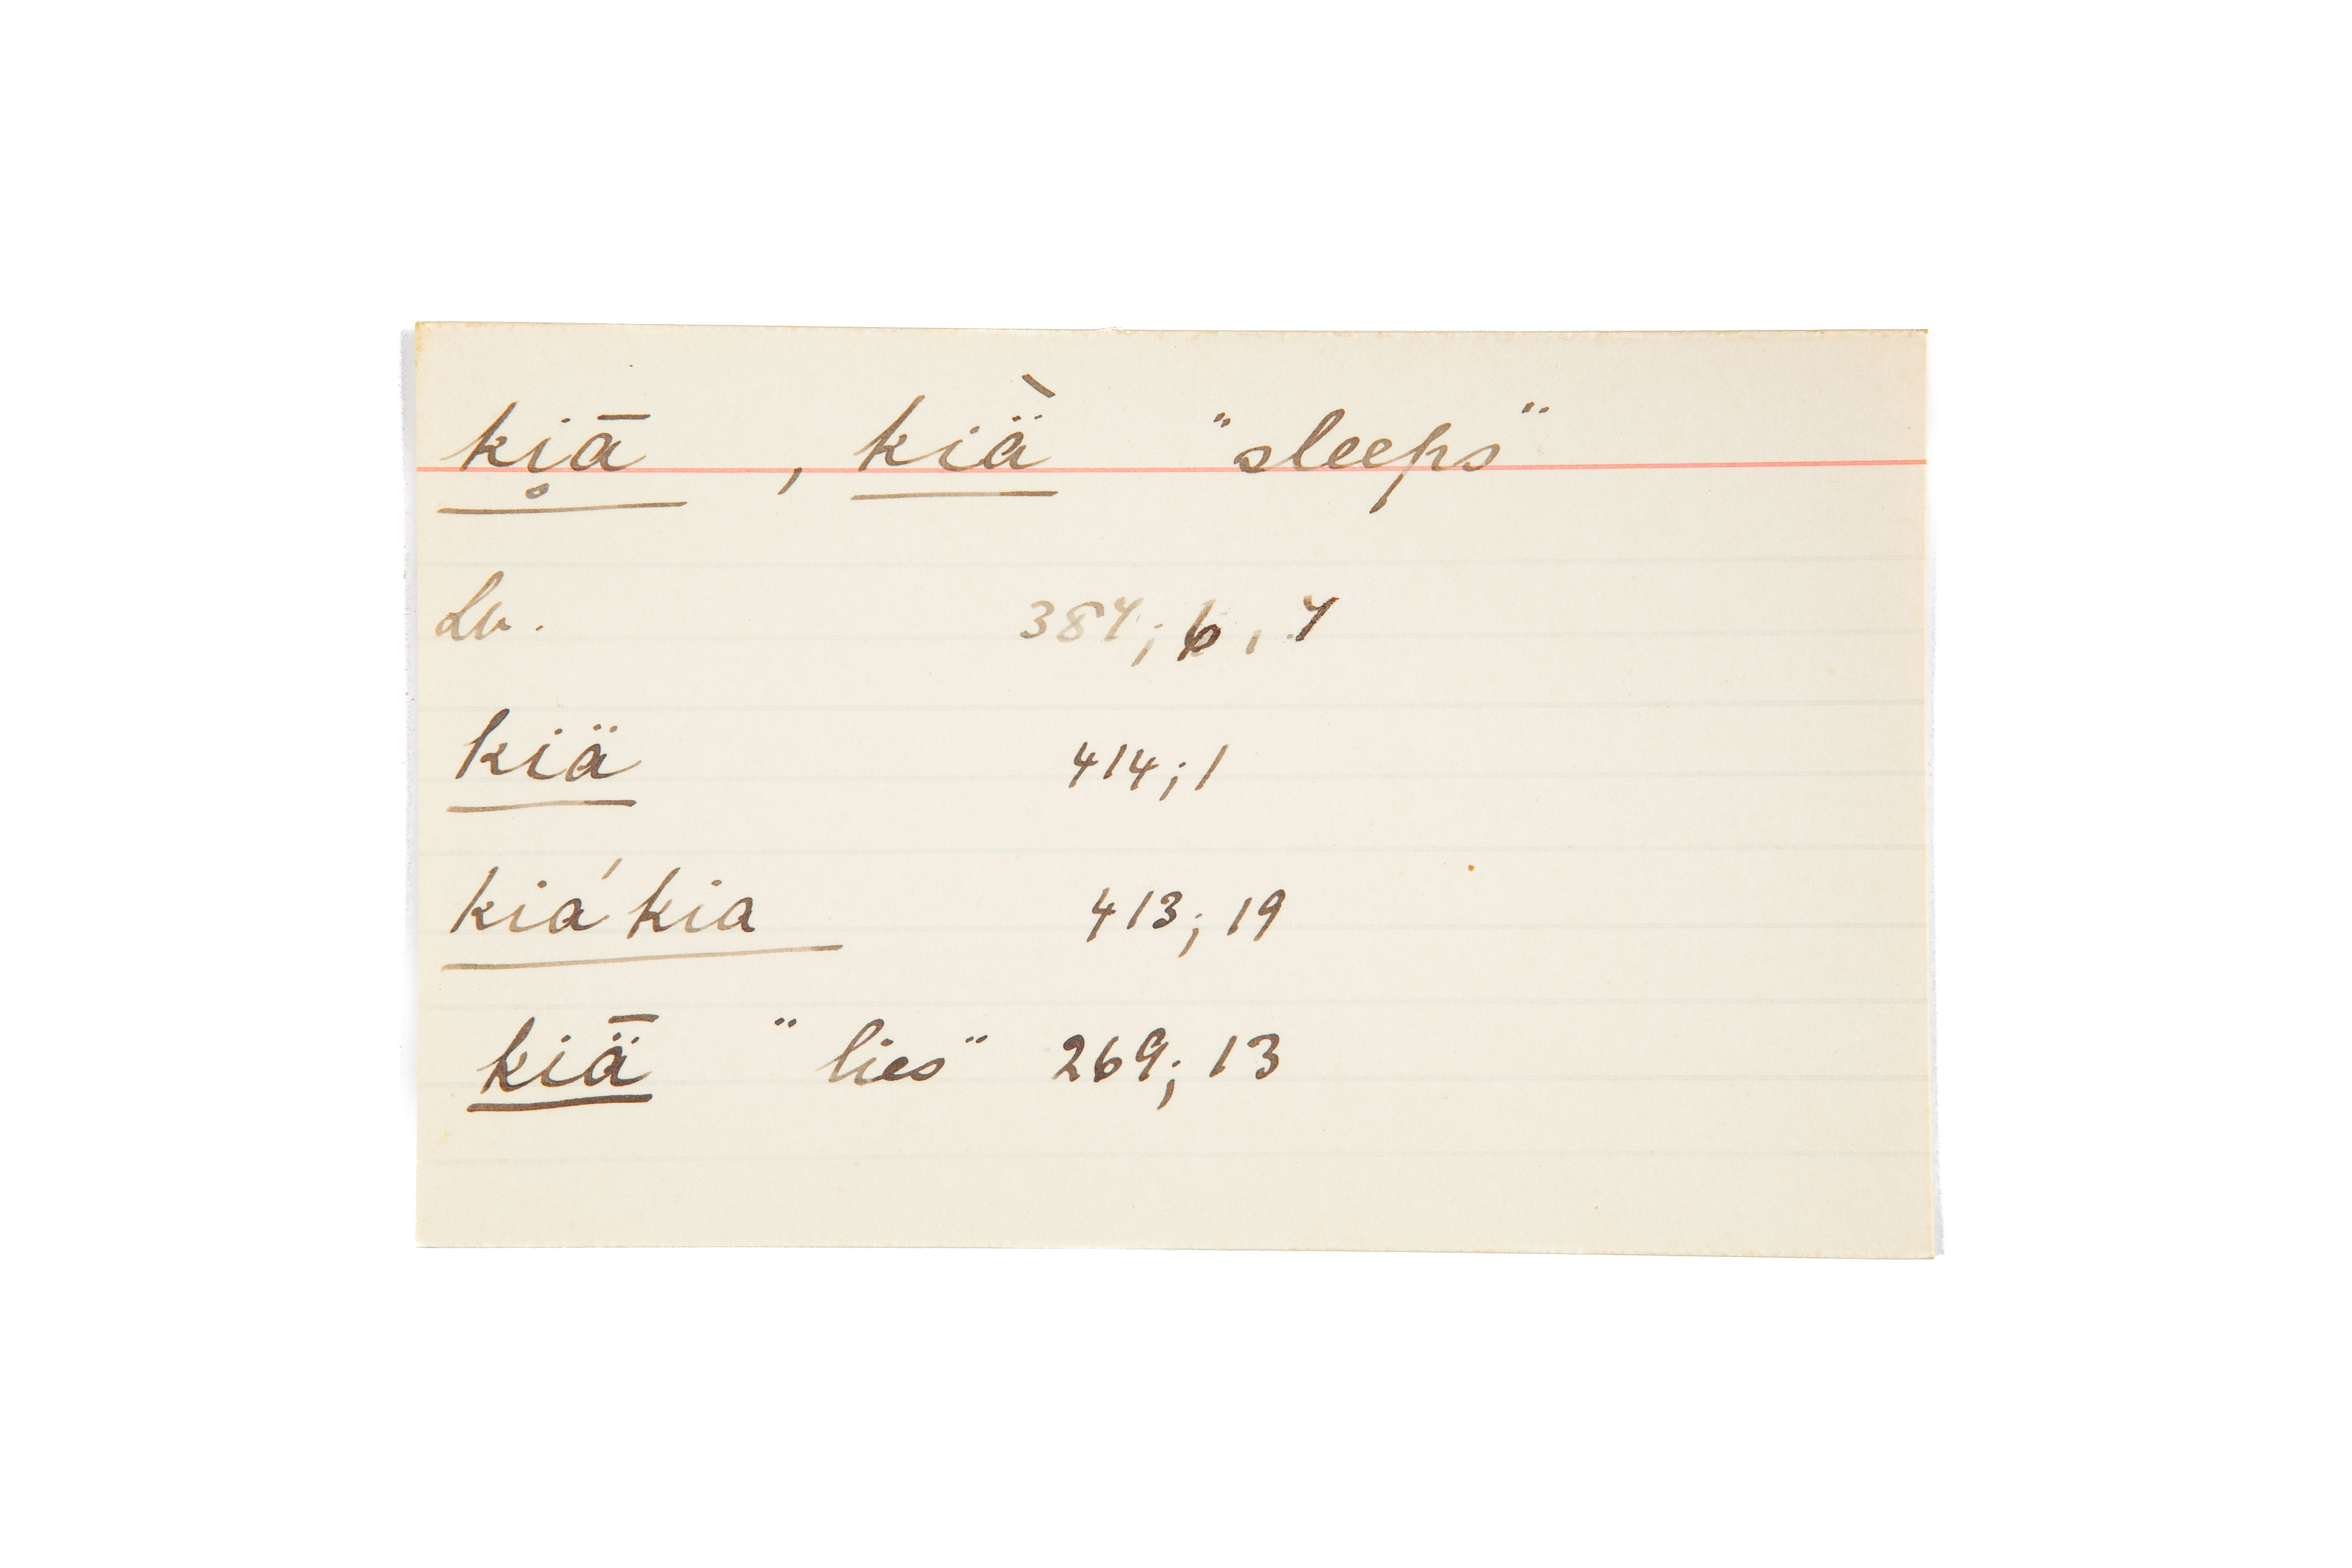 ki̥ā , kiä̀ "sleeps"
Lb. 387; 6, 7
kiä 414; 1
kiá kia 413; 19
kiǟ "lies" 269; 13